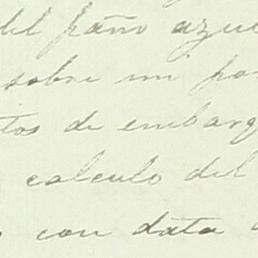 del paño azu
sobre mi pa
tos de embarg
calculo del
con data